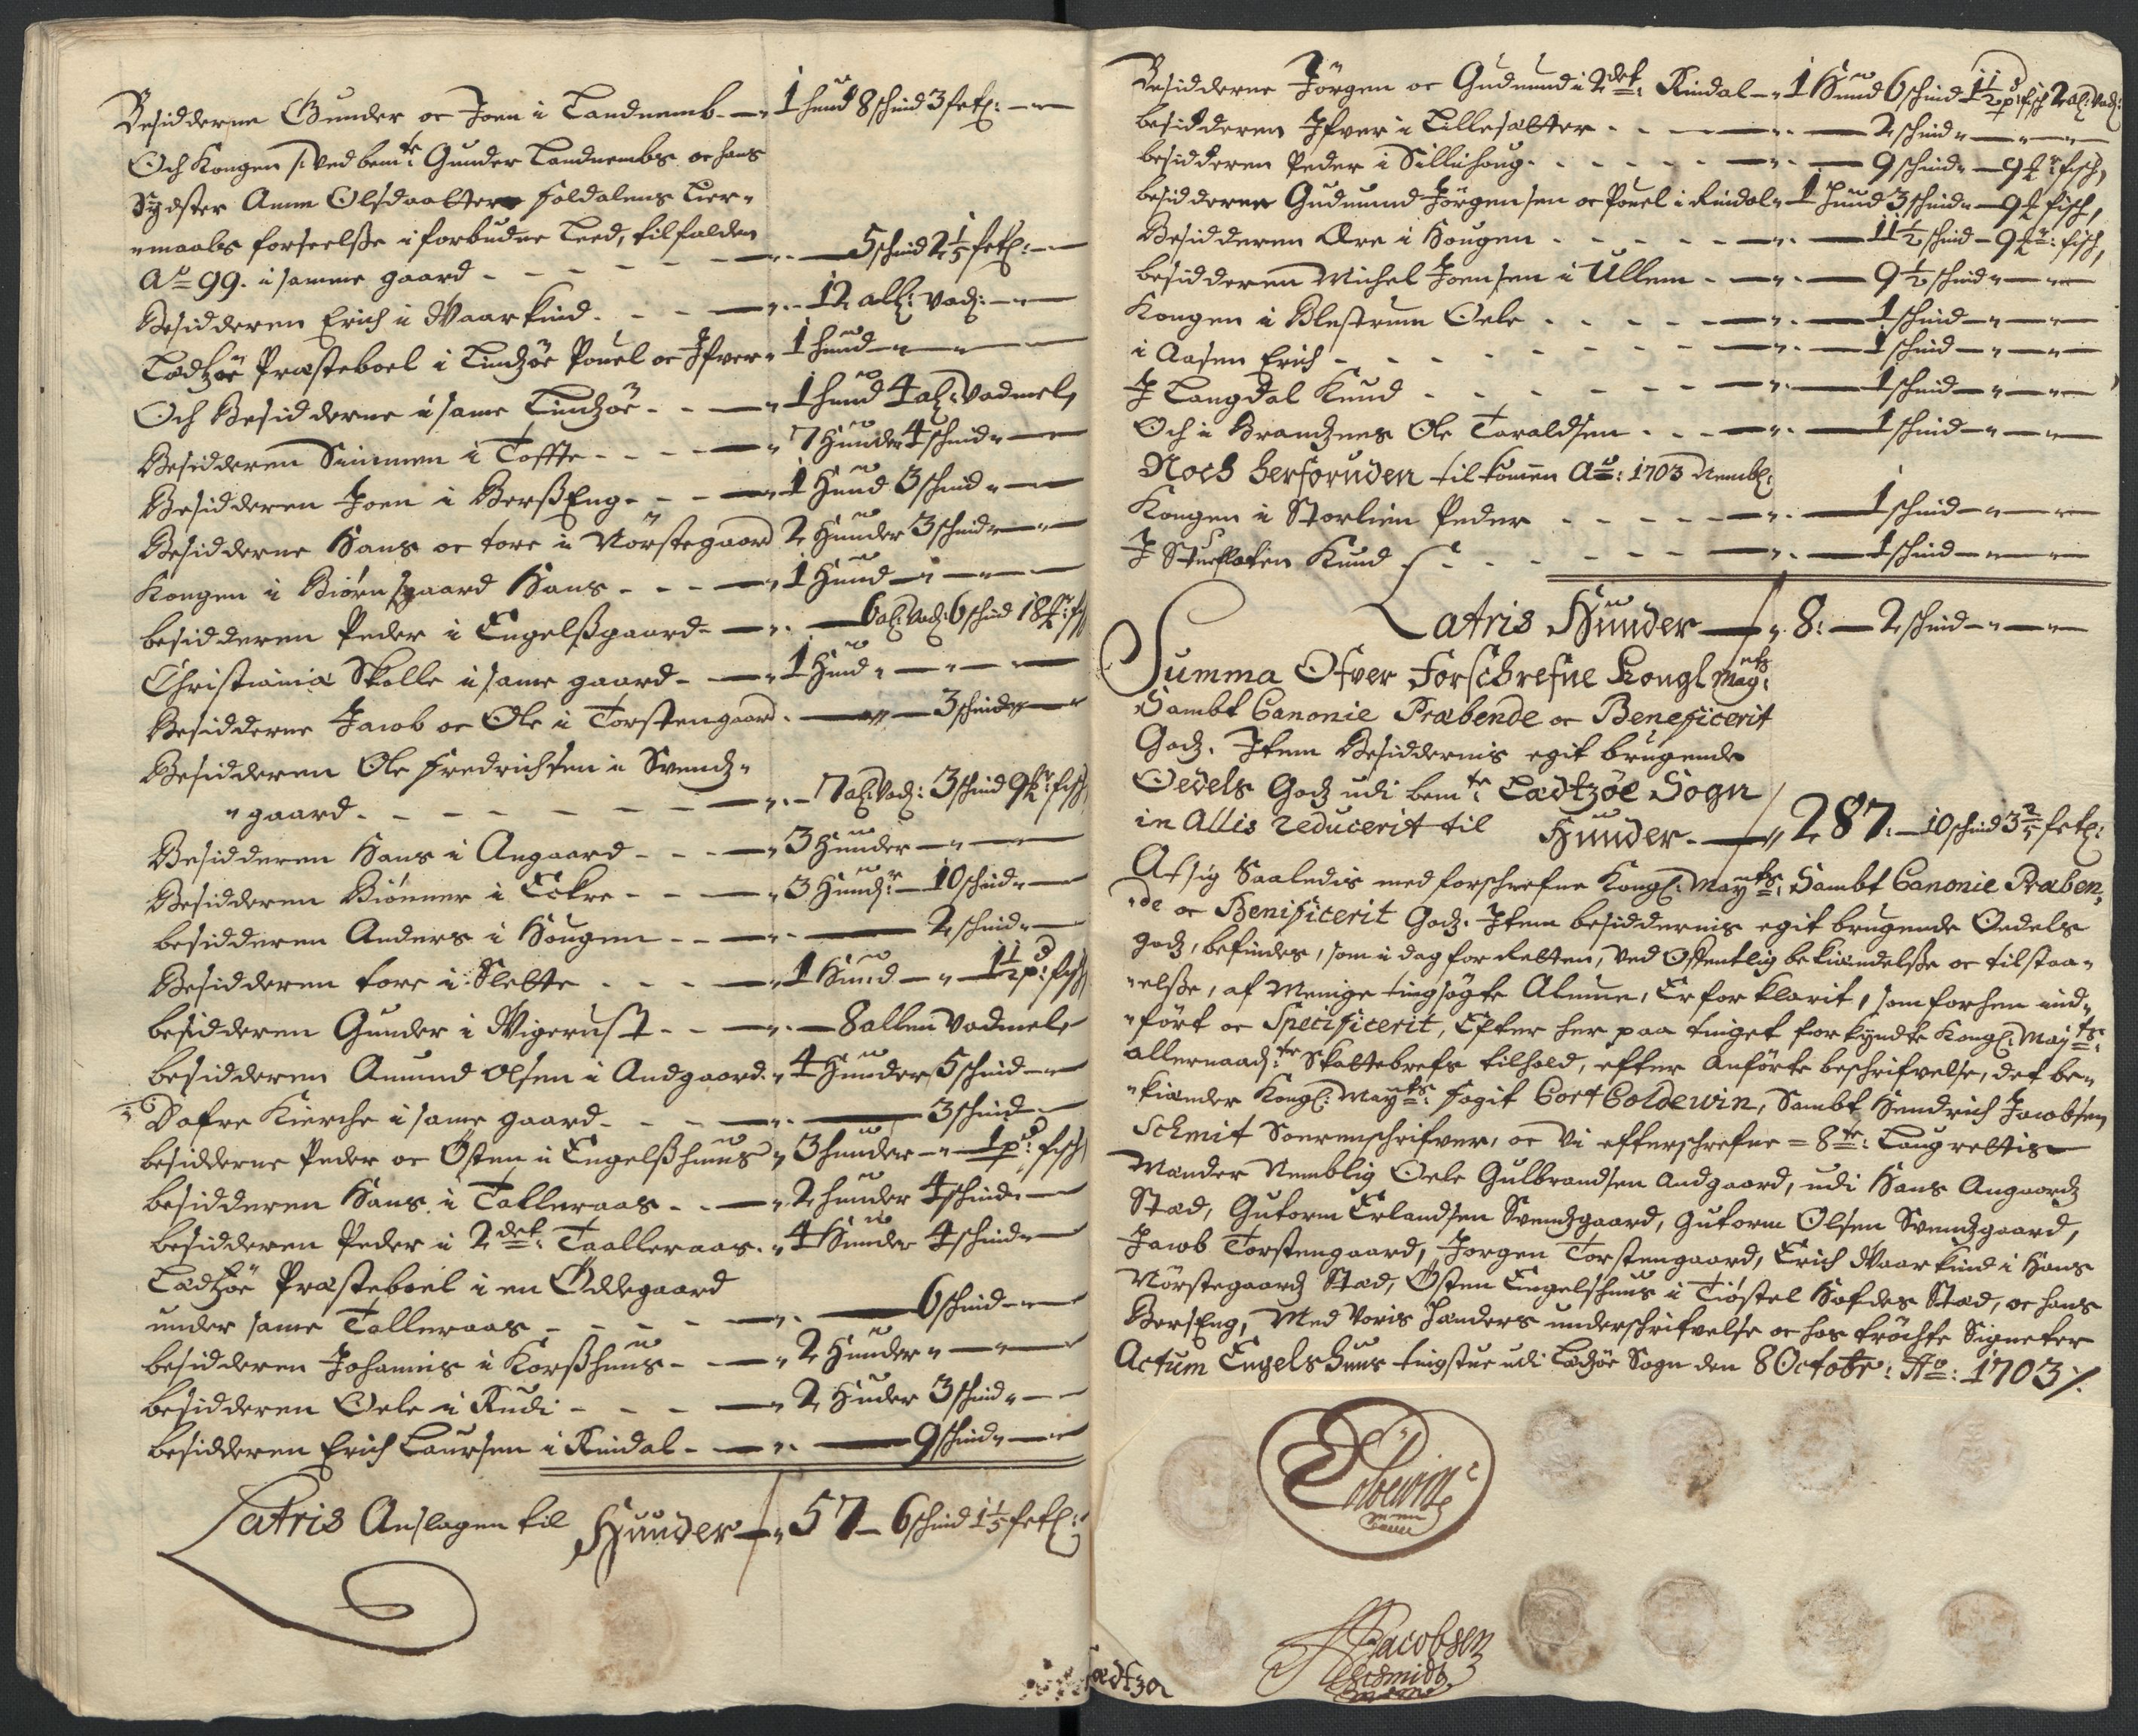 Besidderne Gunder oc Joen i Landnemb - 1 hund 8 schind 3 fetl:
Och Kongen /: ved bemte: Gunder Landnembs oc hans
Sydster Anne Olsdaatter Foldalens Leer-
maals forseelsse i forbudne Leed, tilfalden
Ao 99. i samme gaard - - - 5 schind 2 1/5 fetl:
Besidderen Erich i Waarkind - - - 12 all: vad:
Lædtzøe Præsteboel i Lindzøe Pouel oc Ifver - 1 hund
Och Besidderne i same Lindzøe - - - 1 hund 4 al: Vadmel,
Besidderen Simmen i Toffte - - - 7 Hunder 4 schind
Besidderen Joen i BerssEng - - - 1 Hund 3 schind
Besidderne Hans oc tore i Nörstegaard 2 Hunder 3 schind
Kongen i Biørnsgaard Hans - - - 1 Hund
besidderen Peder i Engelssgaard - 6 al: Vad: 6 schind 18 fisch
Christiania Skolle i same gaard - 1 Hund
Besidderne Jacob oc Ole i Torstengaard - 3 schind
Besidderen Ole Fredrichsen i Svendz-
gaard - - - 7 al: Vad: 3 schind 9 fisch
Besidderen Hans i Angaard - - - 3 Hunder
Besidderen Biönner i Eckre - - - 3 Hundr: 10 schind
besidderen Anders i Hougen - - - 2 schind
Besidderen tore i Slette - - - 1 Hund - 1 1/2 pd: fisch
besidderen Gunder i Wigerust - - - 8 allen Vadmel
besidderen Amund Olsen i Andgaard - 4 Hunder 5 schind
Dofre Kierche i same gaard - - - 3 schind
besidderne Peder oc Östen i Engelsshuus - 3 hunder - 1 pd: fisch
besidderen Hans i Talleraas - - - 2 hunder 4 schind
besidderen Peder i 2det: Taalleraas - 4 Hunder 4 schind
Lædtzøe Præsteboel i en Öddegaard
under same Talleraas - - - 6 schind
besidderen Johannis i Korsshuus - - - 2 Hunder
besidderen Oele i Rudi - - - 2 Huder 3 schind
besidderen Erich Laursen i Rindal - - - 9 schind
Latris Anslagen til Hunder - 57 - 6 schind 1 1/5 fetl:
Besidderne Jörgen oc Gudmund i 2det: Rindal - 1 Hund 6 schind 1 1/2 pd: fisch 2 al: vad:
besidderen Ifver i Lillesætter - - - 2 schind
besidderen Peder i Sillihoug - - - 9 schind - 9 fisch,
besidderne Gudmund Jörgensen oc Pouel i Rindal - 1 Hund 3 schind - 9 fisch,
Besidderen Are i Hougen - - - 11 1/2 schind - 9 fisch,
besidderen Michel Joensen i Ullem - - - 9 1/2 schind
Kongen i Blestrum Oele - - - 1 schind
i Aasen Erich - - - 1 schind
I Langdal Knud - - - 1 schind
Och i Brandznes Ole Toraldsen - - - 1 schind
Noch herforuden tilkomen Ao: 1703 Nembl:
Kongen i Storlien Peder - - - 1 schind
I Stuefloten Knud - - - 1 schind
Latris Hunder - 8: - 2 schind
Summa Ofver Forschrefne Kongl Mayts:
Sambt Canonie Præbende oc Beneficerit
Godz. Item Besiddernis egit brugende
Oedels Godz udi bemte: Lædtzøe Sogn
in Allis reducerit til Hunder - 287: - 10 schind 3 2/5 fetl:
At sig Saaledis med forschrefne Kongl: Mayts: Sambt Canonie Præben-
de oc Benificerit Godz. Item besiddernis egit brugende Oedels
godz, befindes, som i dag for Retten, ved Offentlig bekiendelsse oc tilstaa-
elsse, af Menige tingsögte Almue, Er forklarit, som forhen ind-
fört oc Specificerit, Efter her paa tinget forkyndte Kongl: Mayts:
allernaadste: Skattebrefs tilhold, efter Anförte beschrifvelse, det be-
kiender Kongl: Mayts: Fogit Cort Coldewin, Sambt Hendrich Jacobsen
Schmit Sorenschrifver, oc Vi efterschrefne = 8te: Laugrettis
Mænder Nemblig Oele Gulbrandsen Andgaard, udi Hans Angaards
Stæd, Gutorm Erlandsen Svendzgaard, Gutorm Olsen Svendzgaard,
Jacob Torstengaard, Jorgen Torstengaard, Erich Waarkind i Hans
Nörstegaards Stæd, Östen Engelshuus i Tiöstel Hofdes Stæd, oc hans
BersEng, Med Voris Hænders underschrifvelse oc hos tröchte Signeter
Actum Engelshuus tingstue udi Lædzøe Sogn den 8 Octobr: Ao: 1703 /.
Coldewin
HJacobsen
Schmidt
Lædtzø